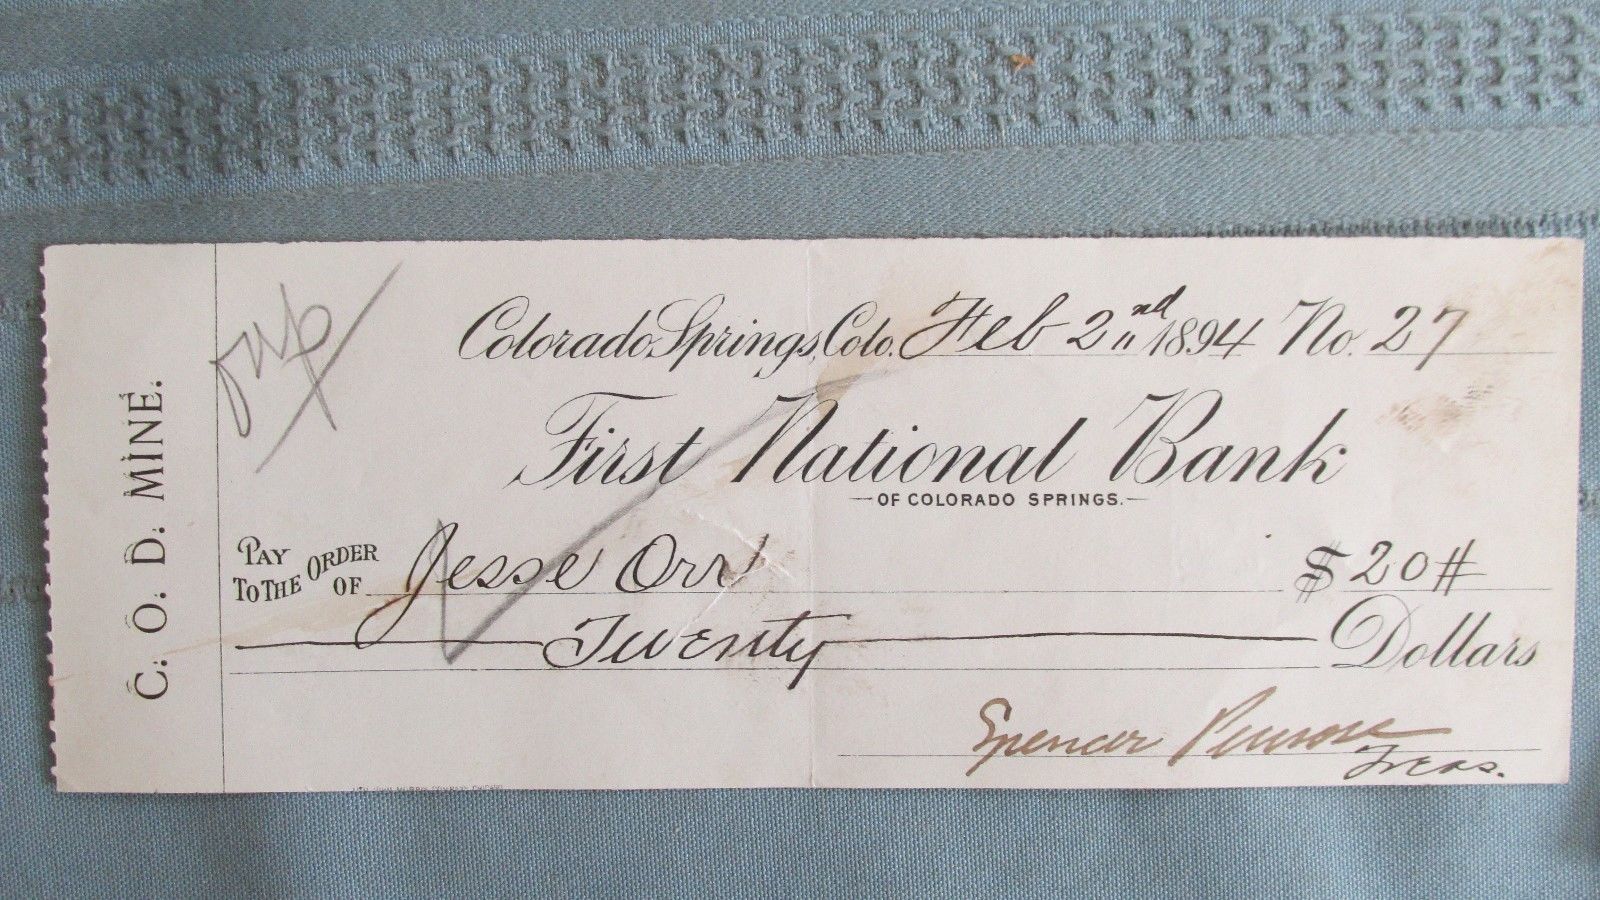 C. O. D. MINE.
Colorado Springs, Colo. Feb 2nd 1894 No. 27
First National Bank
OF COLORADO SPRINGS.
PAY TO THE ORDER OF Jesse Orr $20#
Twenty Dollars
Spencer Penrose
Treas.